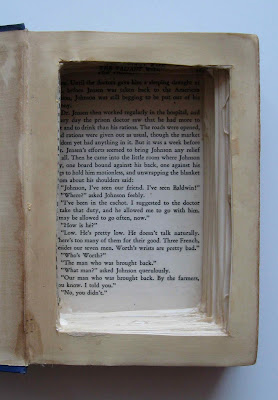 on. Until the Sultan gave him a sleeping draught at
Jensen was taken back to the American
Johnson was still begging to be put out of his
Dr. Jensen often worked regularly in the hospital, and
ery day the prison doctor saw that he had more to
and to drink than his rations. The roads were opened,
d rations were given out as usual, though the market
dn't yet had anything in it. But it was a week before
y. Jensen's efforts served to bring Johnson any relief
all. Then he came into the little room where Johnson
y, one board bound against his back, one against his
gs to hold him motionless, and unwrapping the blanket
om about his shoulders said:
"Johnson, I've seen our friend. I've seen Baldwin!"
"Where?" asked Johnson feebly.
"I've been in the cachot. I suggested to the doctor
take that duty, and he allowed me to go with him.
may be allowed to go often, now."
"How is he?"
"Low. He's pretty low. He doesn't talk naturally.
here's too many of them for their good. Three French,
sides our seven men. Worth's wrists are pretty bad."
"Who's Worth?"
"The man who was brought back."
"What man?" asked Johnson querulously.
"Our man who was brought back. By the farmers,
ou know. I told you."
"No, you didn't."